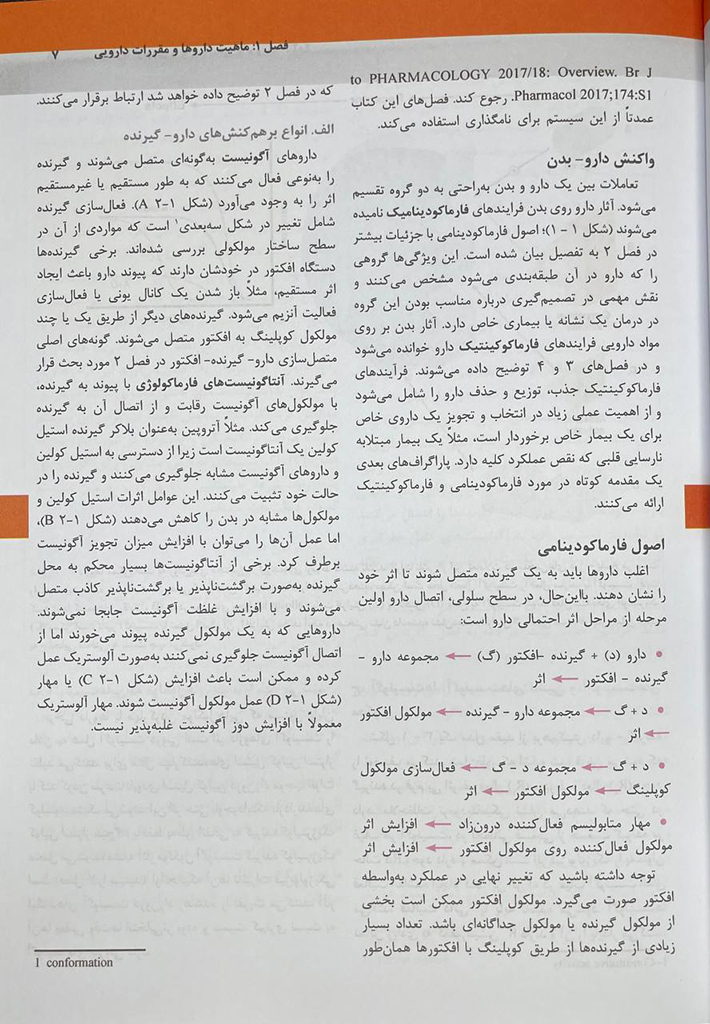 فصل ۱: ماهیت داروها و مقررات دارویی ۷
to PHARMACOLOGY 2017/18: Overview. Br J
Pharmacol 2017;174:S1. رجوع کند. فصل‌های این کتاب
عمدتاً از این سیستم برای نامگذاری استفاده می‌کند.
واکنش دارو- بدن
تعاملات بین یک دارو و بدن به‌راحتی به دو گروه تقسیم
می‌شود. آثار دارو روی بدن فرایندهای فارماکودینامیک نامیده
می‌شوند (شکل ۱ - ۱)؛ اصول فارماکودینامی با جزئیات بیشتر
در فصل ۲ به تفصیل بیان شده است. این ویژگی‌ها گروهی
را که دارو در آن طبقه‌بندی می‌شود مشخص می‌کنند و
نقش مهمی در تصمیم‌گیری درباره مناسب بودن این گروه
در درمان یک نشانه یا بیماری خاص دارد. آثار بدن بر روی
مواد دارویی فرایندهای فارماکوکینتیک دارو خوانده می‌شود
و در فصل‌های ۳ و ۴ توضیح داده می‌شوند. فرآیندهای
فارماکوکینتیک جذب، توزیع و حذف دارو را شامل می‌شود
و از اهمیت عملی زیاد در انتخاب و تجویز یک داروی خاص
برای یک بیمار خاص برخوردار است، مثلاً یک بیمار مبتلابه
نارسایی قلبی که نقص عملکرد کلیه دارد. پاراگراف‌های بعدی
یک مقدمه کوتاه در مورد فارماکودینامی و فارماکوکینتیک
ارائه می‌کنند.
اصول فارماکودینامی
اغلب داروها باید به یک گیرنده متصل شوند تا اثر خود
را نشان دهند. بااین‌حال، در سطح سلولی، اتصال دارو اولین
مرحله از مراحل اثر احتمالی دارو است:
• دارو (د) + گیرنده -افکتور (گ) ← مجموعه دارو -
گیرنده - افکتور ← اثر
• د + گ ← مجموعه دارو - گیرنده ← مولکول افکتور
← اثر
• د + گ ← مجموعه د - گ ← فعال‌سازی مولکول
کوپلینگ ← مولکول افکتور ← اثر
• مهار متابولیسم فعال‌کننده درون‌زاد ← افزایش اثر
مولکول فعال‌کننده روی مولکول افکتور ← افزایش اثر
توجه داشته باشید که تغییر نهایی در عملکرد به‌واسطه
افکتور صورت می‌گیرد. مولکول افکتور ممکن است بخشی
از مولکول گیرنده یا مولکول جداگانه‌ای باشد. تعداد بسیار
زیادی از گیرنده‌ها از طریق کوپلینگ با افکتورها همان‌طور
که در فصل ۲ توضیح داده خواهد شد ارتباط برقرار می‌کنند.
الف. انواع برهم‌کنش‌های دارو- گیرنده
داروهای آگونیست به‌گونه‌ای متصل می‌شوند و گیرنده
را به‌نوعی فعال می‌کنند که به طور مستقیم یا غیرمستقیم
اثر را به وجود می‌آورد (شکل ۱-۲ A). فعال‌سازی گیرنده
شامل تغییر در شکل سه‌بعدی۱ است که مواردی از آن در
سطح ساختار مولکولی بررسی شده‌اند. برخی گیرنده‌ها
دستگاه افکتور در خودشان دارند که پیوند دارو باعث ایجاد
اثر مستقیم، مثلاً باز شدن یک کانال یونی یا فعال‌سازی
فعالیت آنزیم می‌شود. گیرنده‌های دیگر از طریق یک یا چند
مولکول کوپلینگ به افکتور متصل می‌شوند. گونه‌های اصلی
متصل‌سازی دارو- گیرنده- افکتور در فصل ۲ مورد بحث قرار
می‌گیرند. آنتاگونیست‌های فارماکولوژی با پیوند به گیرنده،
با مولکول‌های آگونیست رقابت و از اتصال آن به گیرنده
جلوگیری می‌کند. مثلاً آتروپین به‌عنوان بلاکر گیرنده استیل
کولین یک آنتاگونیست است زیرا از دسترسی به استیل کولین
و داروهای آگونیست مشابه جلوگیری می‌کنند و گیرنده را در
حالت خود تثبیت می‌کنند. این عوامل اثرات استیل کولین و
مولکول‌ها مشابه در بدن را کاهش می‌دهند (شکل ۱-۲ B)،
اما عمل آن‌ها را می‌توان با افزایش میزان تجویز آگونیست
برطرف کرد. برخی از آنتاگونیست‌ها بسیار محکم به محل
گیرنده به‌صورت برگشت‌ناپذیر یا برگشت‌ناپذیر کاذب متصل
می‌شوند و با افزایش غلظت آگونیست جابجا نمی‌شوند.
داروهایی که به یک مولکول گیرنده پیوند می‌خورند اما از
اتصال آگونیست جلوگیری نمی‌کنند به‌صورت آلوستریک عمل
کرده و ممکن است باعث افزایش (شکل ۱-۲ C) یا مهار
(شکل ۱-۲ D) عمل مولکول آگونیست شوند. مهار آلوستریک
معمولاً با افزایش دوز آگونیست غلبه‌پذیر نیست.
1 conformation